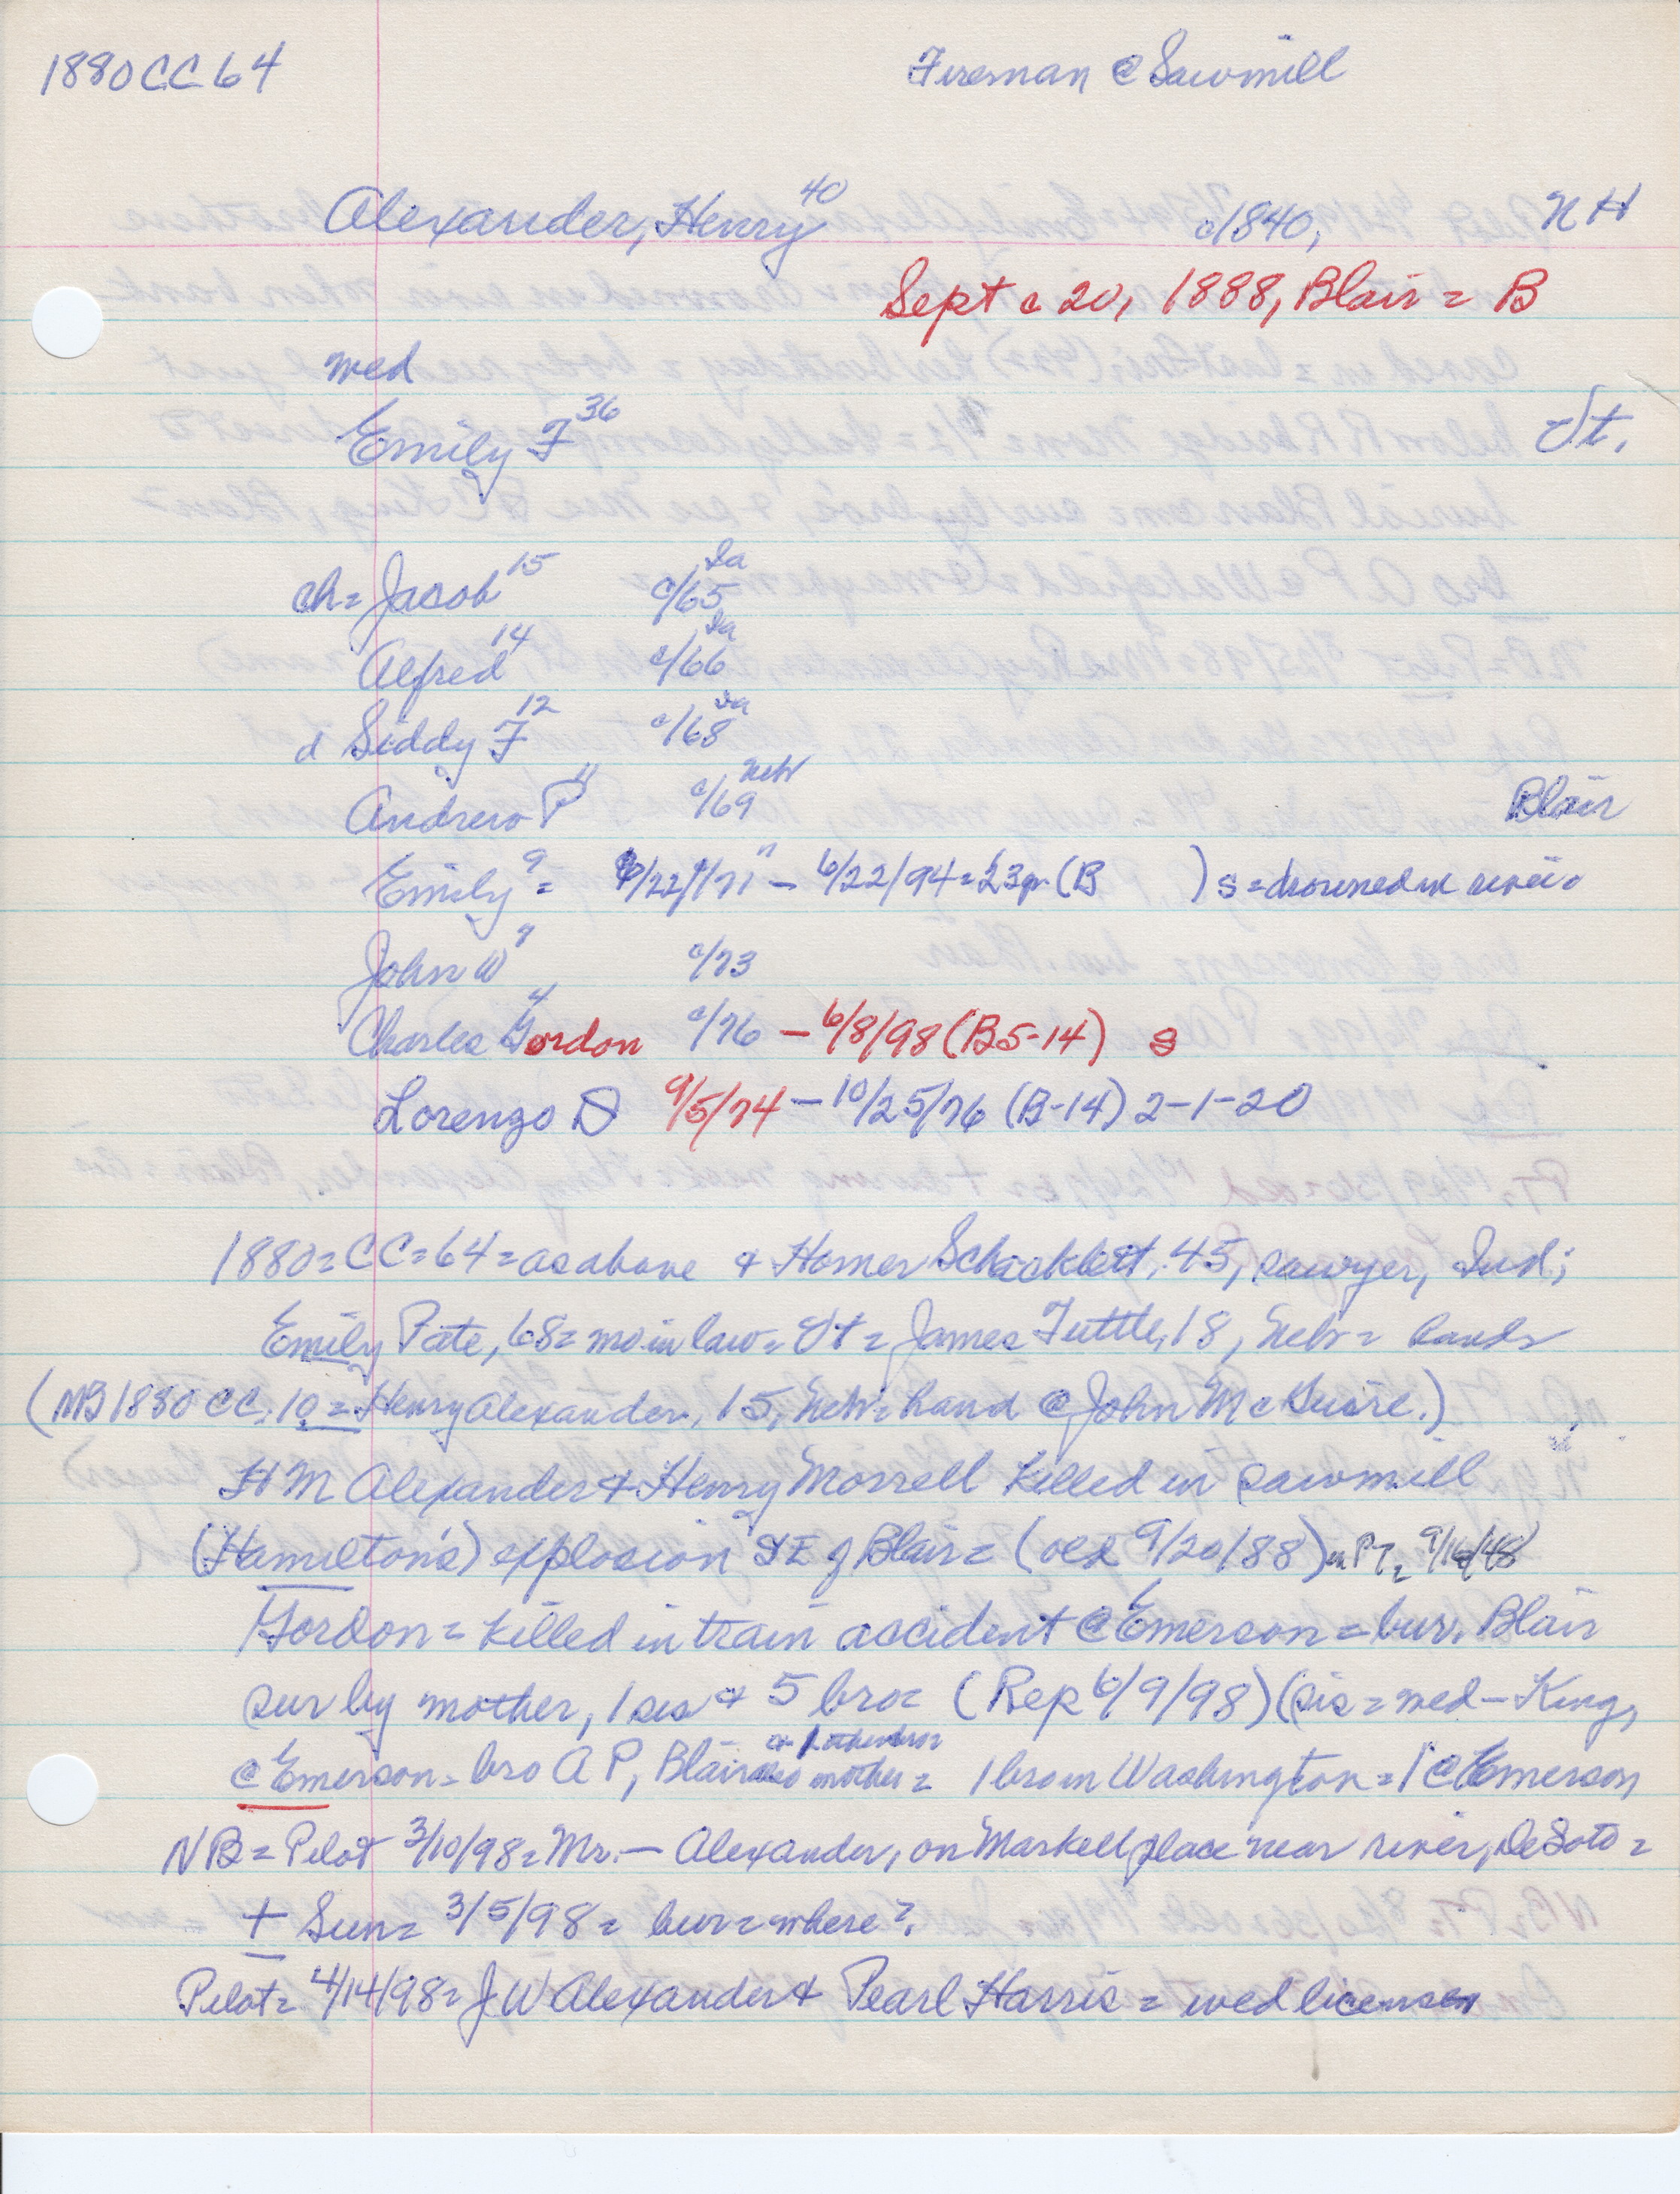 1880 CC 64 Fireman @ Sawmill
Alexander, Henry 40 c1840, NH
Sept c 20, 1888, Blair = B
wed
Emily F 36 Vt.
ch = Jacob 15 c/65 Ia
Alfred 14 c/66 Ia
d Siddy F 12 c/68 Ia
Andrew P 11 c/69 Nebr Blair
Emily 9 = /22/71 — 6/22/94 = 23 yr (B ) s = drowned in river
John W 7 c/73
Charles Gordon 4 c/76 — 6/8/98 (B5-14) s
Lorenzo D 9/5/74 — 10/25/76 (B-14) 2-1-20
1880 = CC = 64 = as above & Homer Schacklett, 45, sawyer, Ind;
Emily Pate, 68 = mo in law = Vt = James Tuttle, 18, Nebr = hands
(NB 1880 CC, 10 = Henry Alexander, 15, Nebr = hand @ John McGuire.)
H M Alexander & Henry Morrell killed in sawmill
(Hamilton's) explosion E of Blair = (ocd 9/20/88) in PT = 9//48
Gordon = killed in train accident @ Emerson = bur. Blair
sur by mother, 1 sis & 5 bro = (Rep 6/9/98) (sis = wed — King,
@ Emerson = bro A P, Blair also mother & 1 other bro = 1 bro in Washington = 1 @ Emerson
NB = Pilot 3/10/98 = Mr. — Alexander, on Markell place near river, DeSoto =
+ Sun = 3/5/98 = bur = where?
Pilot = 4/14/98 = J W Alexander & Pearl Harris = wed license